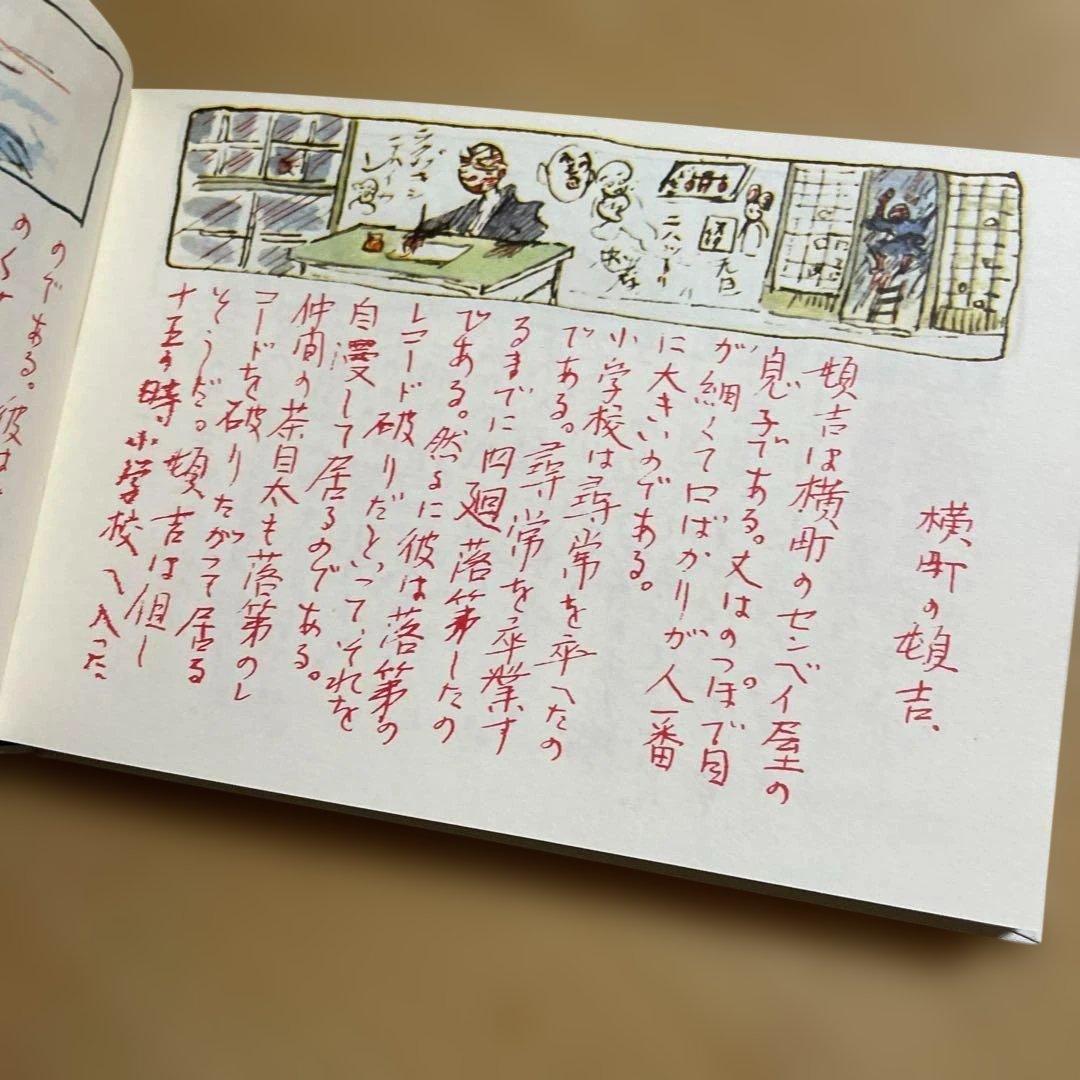 横町の頓吉.
頓吉は横町のセンベイ屋の
息子である。丈はのっぽで目
が細くて口ばかりが人一番
に大きいのである。
小学校は尋常を卒へたの
である。尋常を卒業す
るまでに四廻落第したの
である。然るに彼は落第の
レコード破りだといって、それを
自慢して居るのである。
仲間の茶目太も落第のレ
コードを破りたがって居る
そうだ。頓吉は但し
十五の時小学校へ入った
のである。彼は